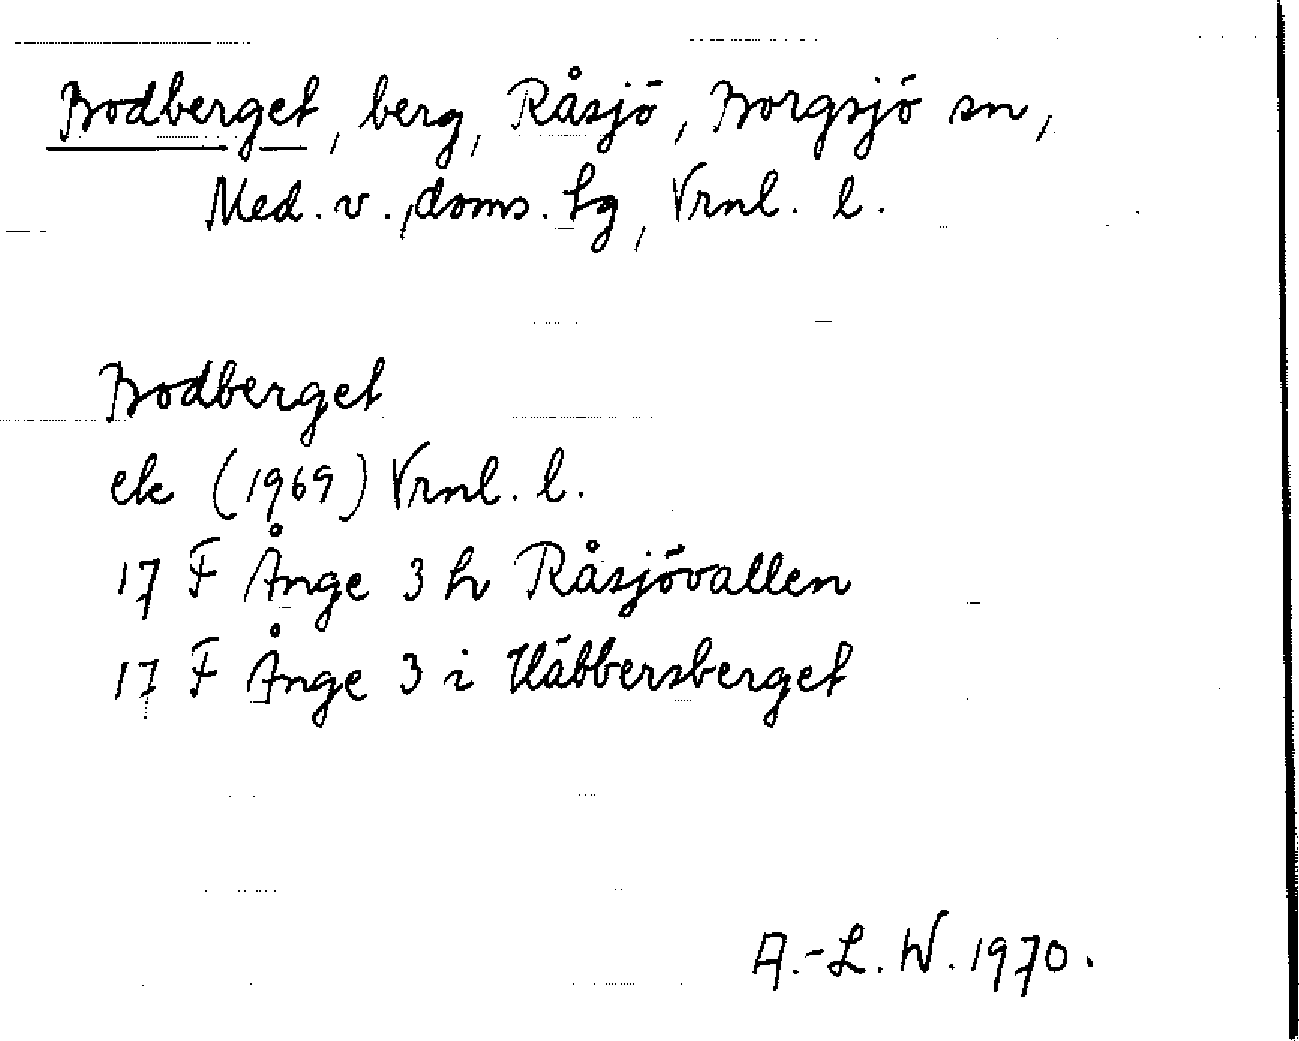 Bodberget, berg, Råsjö, Borgsjö sn,
Med. v., doms. sg, Vrnl. l.
Bodberget
ek (1969) Vrnl. l.
17 F Ånge 3 h Råsjövallen
17 F Ånge 3 i Häbbersberget
A.-L. W. 1970.